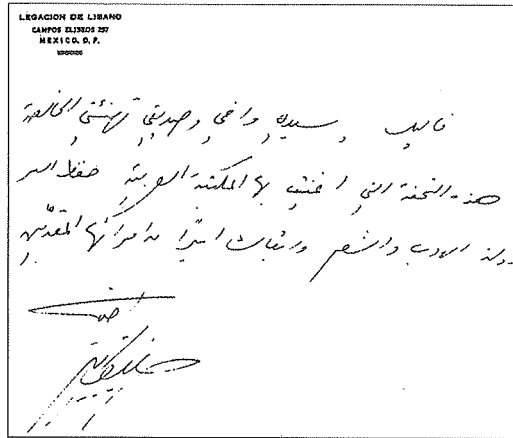 LEGACION DE LIBANO
CAMPOS ELISEOS 257
MEXICO, D. F.
فاليك يا سيدي واخي وصديقي تهنئتي الخالصة
هذه التحفة التي اغنيت بها المكتبة العربية حفظك الله
لدولة الادب والشعر وابقاك اميرًا من امرائها المقدّمين